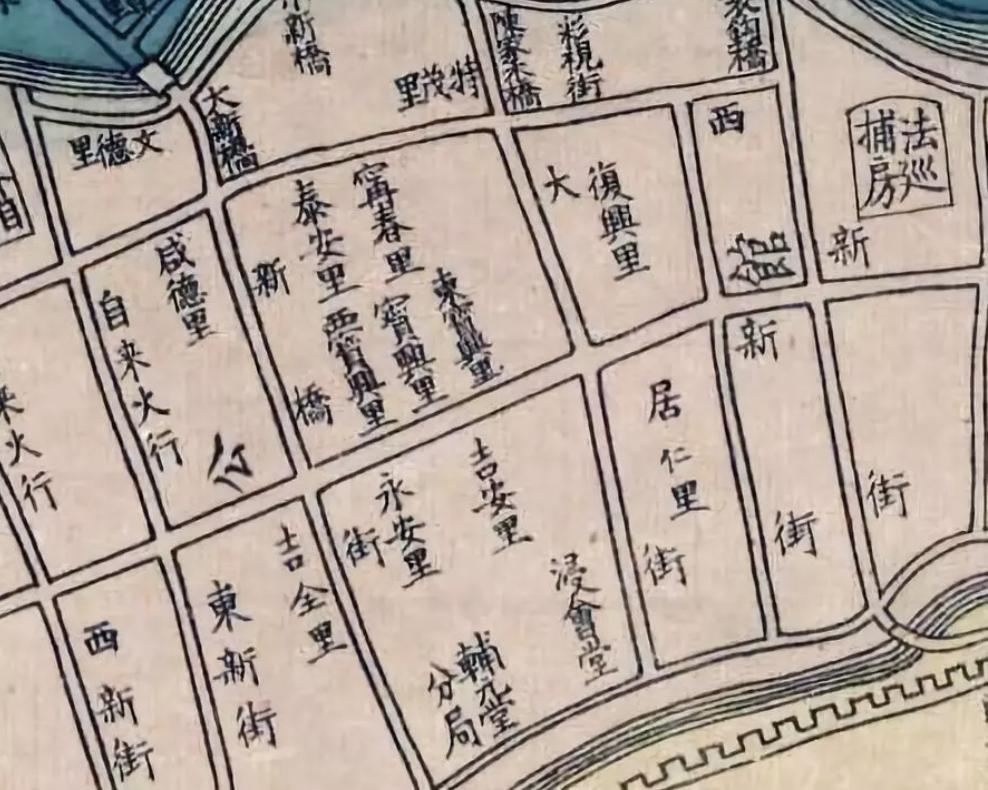 小新橋
特茂里
陳家木橋
彩視街
大新橋
文德里
西
法巡捕房
甯春里
泰安里
復興里
大
新
新
咸德里
自来火行
東寶興里
寶興里
西寶興里
橋
新
居仁里
来火行
公
吉安里
永安里
街
街
街
街
吉全里
浸會堂
東新街
西新街
輔元堂分局